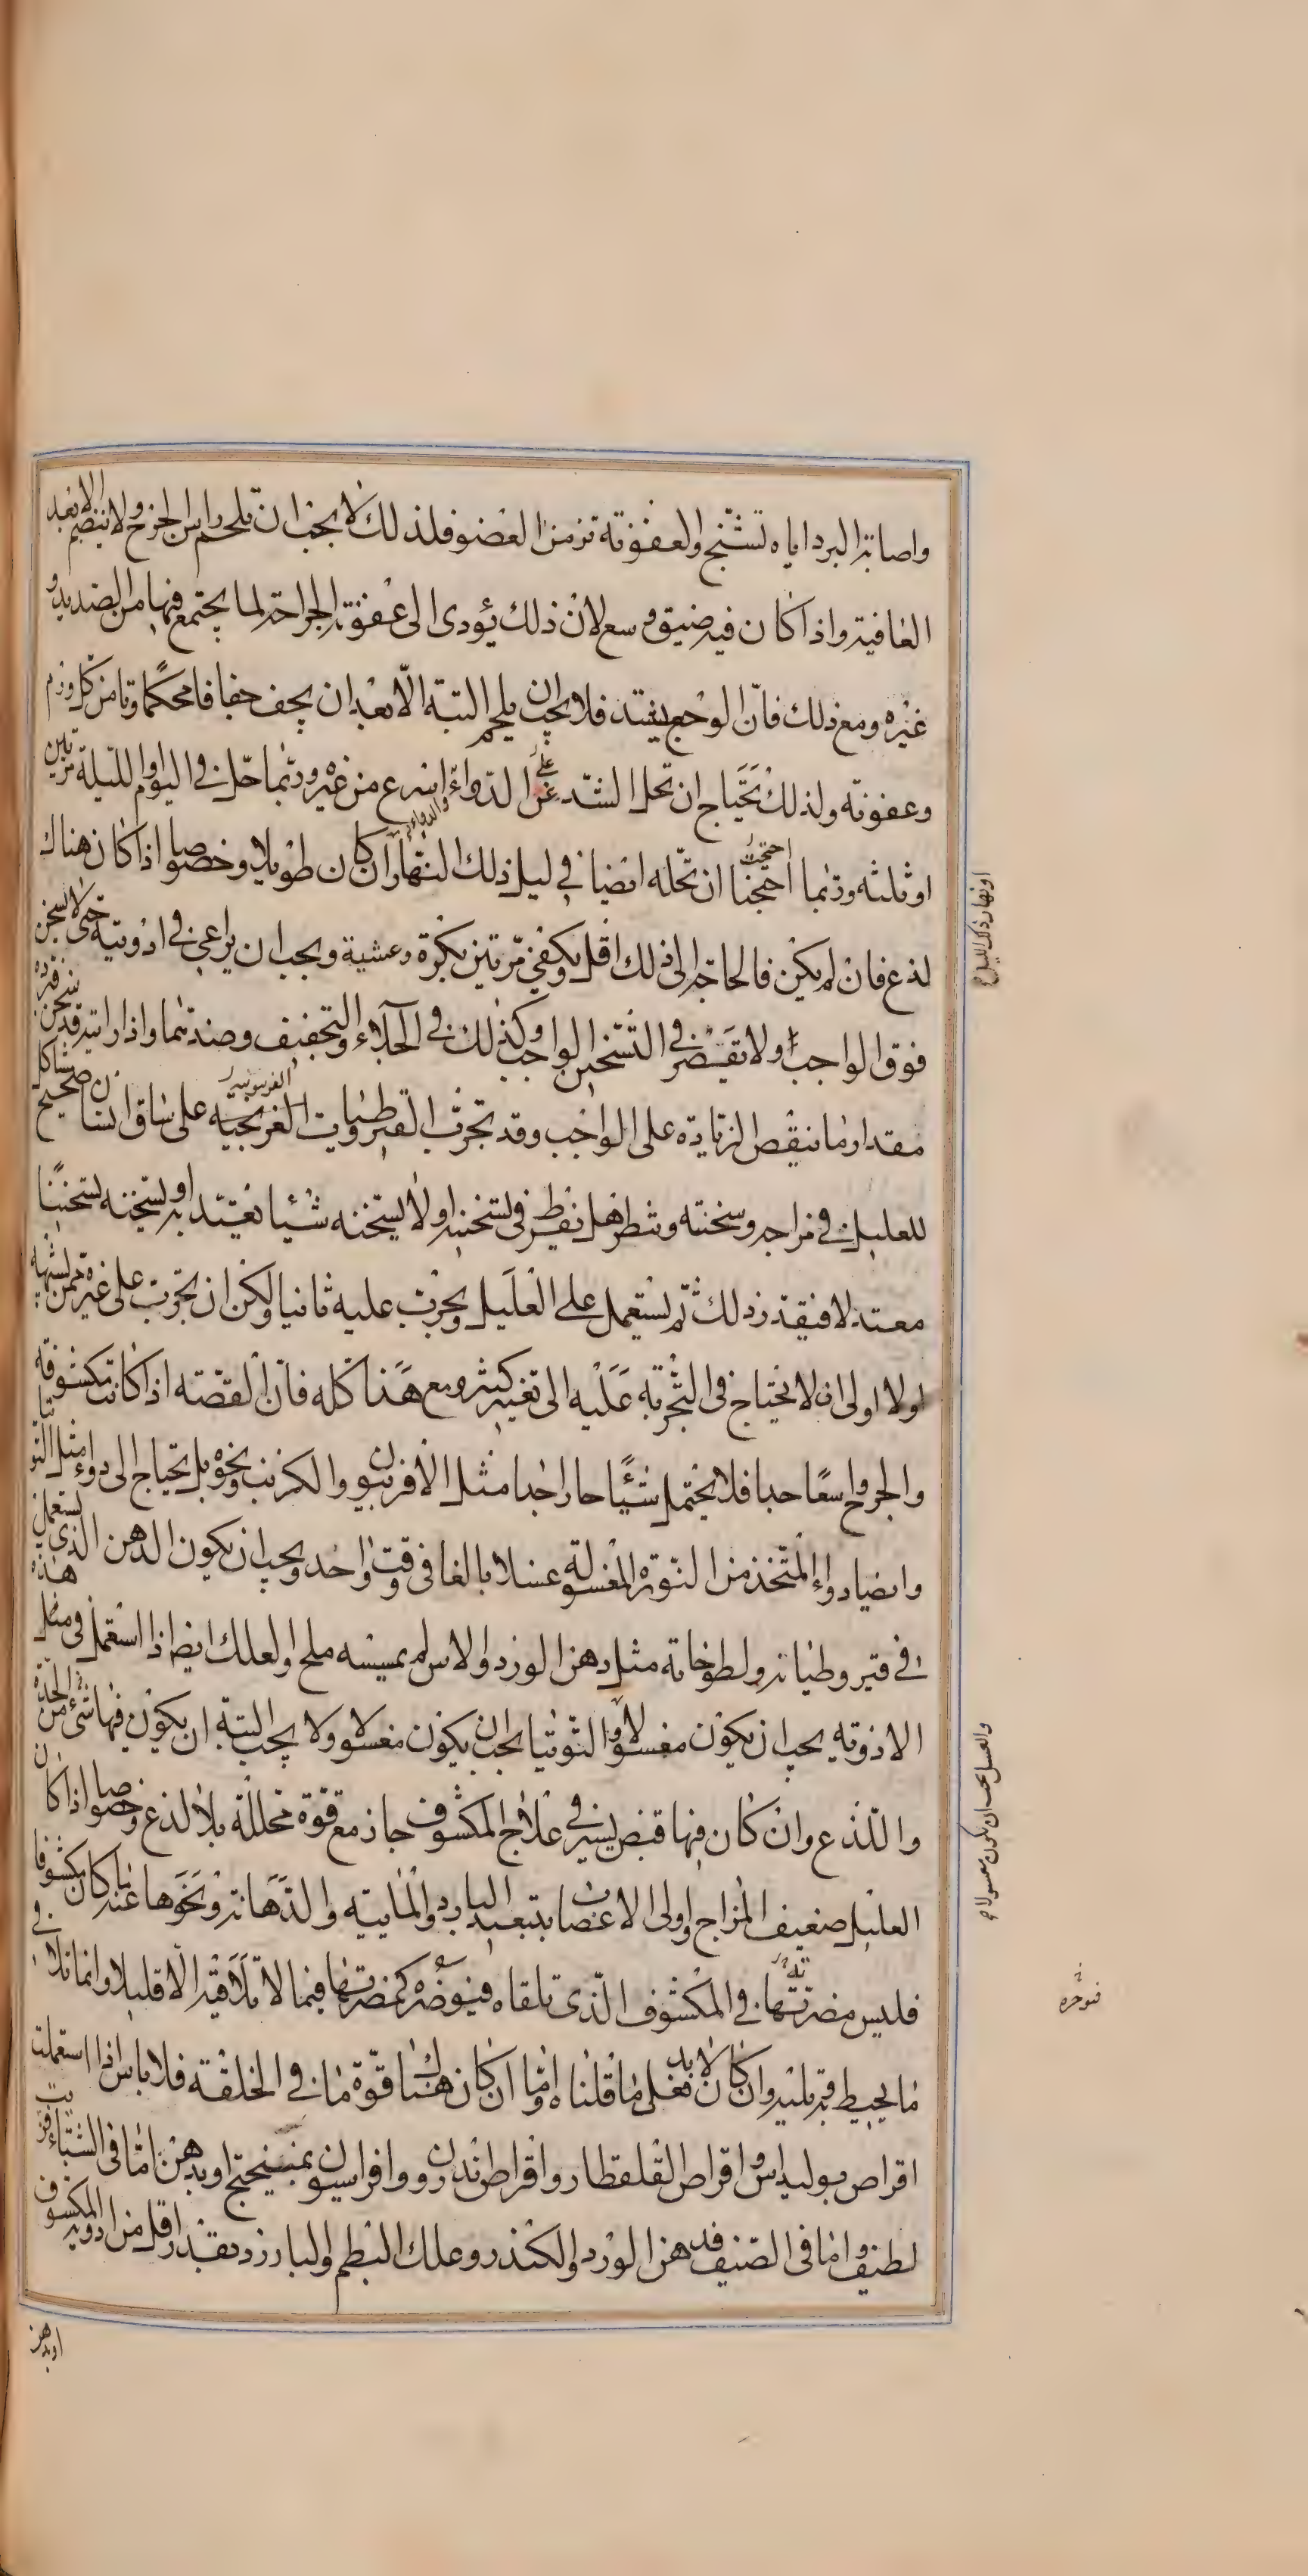 واصابة البرد اياه تشنج والعفونة تزمن العضو فلذلك لا يجب ان تلحم راس الجرح ولا ينضم الا بعد
العافية واذا كان فيه ضيق وسع لان ذلك يؤدى الى عفونة الجراحة لما يجتمع فيها من الصديد و
غيره ومع ذلك فان الوجع يشتد فلا يجب ان يلحم البتة الا بعد ان يجف جفافا محكما وتامن كل ورم
وعفونة ولذلك تحتاج ان تحل الشد عن الدواء اسرع من غيره وربما حل في اليوم او الليلة مرتين
او ثلثه وربما احتجنا ان نحله ايضا في ليل ذلك النهار ان كان طويلا وخصوصا اذا كان هناك
لذع فان لم يكن فالحاجة الى ذلك اقل ويكفي مرتين بكرة وعشية ويجب ان يراعى في ادويته حتى لا تسخن
فوق الواجب ولا تقصر في التسخين الواجب وكذلك في الجلاء والتجفيف وضديهما واذا رايته قد سخن فرده
مقدار ما ينقص الزيادة على الواجب وقد تجرب القيروطيات الفربجيه على ساق انسان صحيح مشاكل
للعليل في مزاجه وسخنته وتنظر هل تفرط في تسخينه او لا يسخنه شيئا يعتد به او يسخنه تسخينا
معتدلا فيقدر ذلك ثم يستعمل على العليل ويجرب عليه ثانيا ولكن ان تجرب على غيره ممن يشبهه
اولا اولى ان لا تحتاج في التجربة عليه الى تغير كثير ومع هذا كله فان القصّه اذا كانت مكشوفة
والجرح واسعا جدا فلا يحتمل شيئا حارا جدا مثل الافربيون والكرنب ونحوه بل تحتاج الى دواء مثل التوتيا
وايضا دواء المتخذ من النورة المغسولة غسلا بالغا في وقت واحد ويجب ان يكون الدهن الذي يستعمل
في قيروطياته ولطوخاته مثل دهن الورد والاس لم يمسسه ملح والعلك ايضا اذا استعمل في مثل هذه
الادويه يجب ان يكون مغسولا والتوتيا يجب ان يكون مغسولا ولا يجب البتة ان يكون فيها شيء من الحدة
واللذع وان كان فيها قبض يسير في علاج المكشوف جاز مع قوة محللة بلا لذع وخصوصا اذا كان
العليل ضعيف المزاج واولى الاعصاب بتبعيد البارد والمايية والدهانة ونحوها عنه ما كان مكشوفا
فليس مضرتها في المكشوف الذي تلقاه فيوضره كمضرتها فيما لا تلاقيه الا قليلا وانما تلاقي
ما يحيط به ويليه وان كان لا بد فعلى ما قلناه واما ان كان هناك قوة ما في الخلقة فلا باس اذا استعملت
اقراص بوليداس واقراص القلقطار واقراص اندرون وافراسيون بميبختج او بدهن اما في الشتاء فزيت
لطيف واما في الصيف فدهن الورد والكندر وعلك البطم والبارزد بقدر اقل من ادوية المكشوف
او بدهن
احتجت
الفربيونية
او نهار ذلك الليل
والعسل يجب ان يكون مغسولا
فتوخره